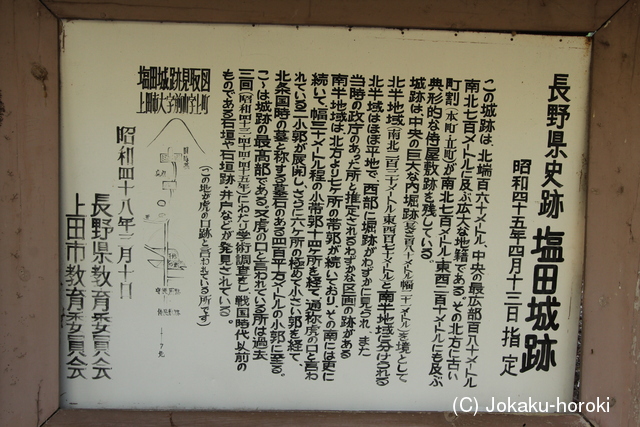 長野県史跡 塩田城跡
昭和四十五年四月十三日 指定
この城跡は、北端百六十メートル、中央の最広部百八十メートル
南北七百メートルに及ぶ広大な地籍である。その北方に古い
町割(本町・立町)が南北七百メートル東西三百十メートルにも及ぶ
典形的な侍屋敷跡を残している。
城跡は中央の巨大な内堀跡(長さ百八十メートル幅二十メートル)を境として
北半地域(南北二百三十メートル東西百七十メートル)と南半地域に分けられる
北半域はほぼ平地で、西部に堀跡がわずかに見られ、また
当時の政庁のあった所と推定されるわずかな区画の跡がある
南半地域は、北方より七ヶ所の帯郭が続いており、その南には更に
続いて、幅三十メートル程の小帯郭十四ヶ所を経て、通称虎の口と言わ
れている二小郭が展開し、さらに六ヶ所の極めて小さい郭を経て、
北条国時の墓と称する墓石のある四百平方メートルの小郭に至る。
こゝは城跡の最高部である。又虎の口と言われている所は過去
三回(昭和四十三・四十四・四十五年)にわたり学術調査をし、戦国時代以前の
ものである石垣や石垣跡・井戸などが発見されている。
(この地が虎の口跡と言われている所です)
塩田城跡見取図
上田市大字前山字上町
昭和四十八年二月十日
長野県教育委員会
上田市教育委員会
(C) Jokaku-horoki